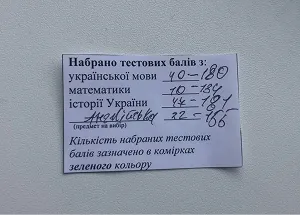 Набрано тестових балів з:
української мови 40-180
математики 10-134
історії України 44-181
Англійська 22-166
(предмет на вибір)
Кількість набраних тестових
балів зазначено в комірках
зеленого кольору